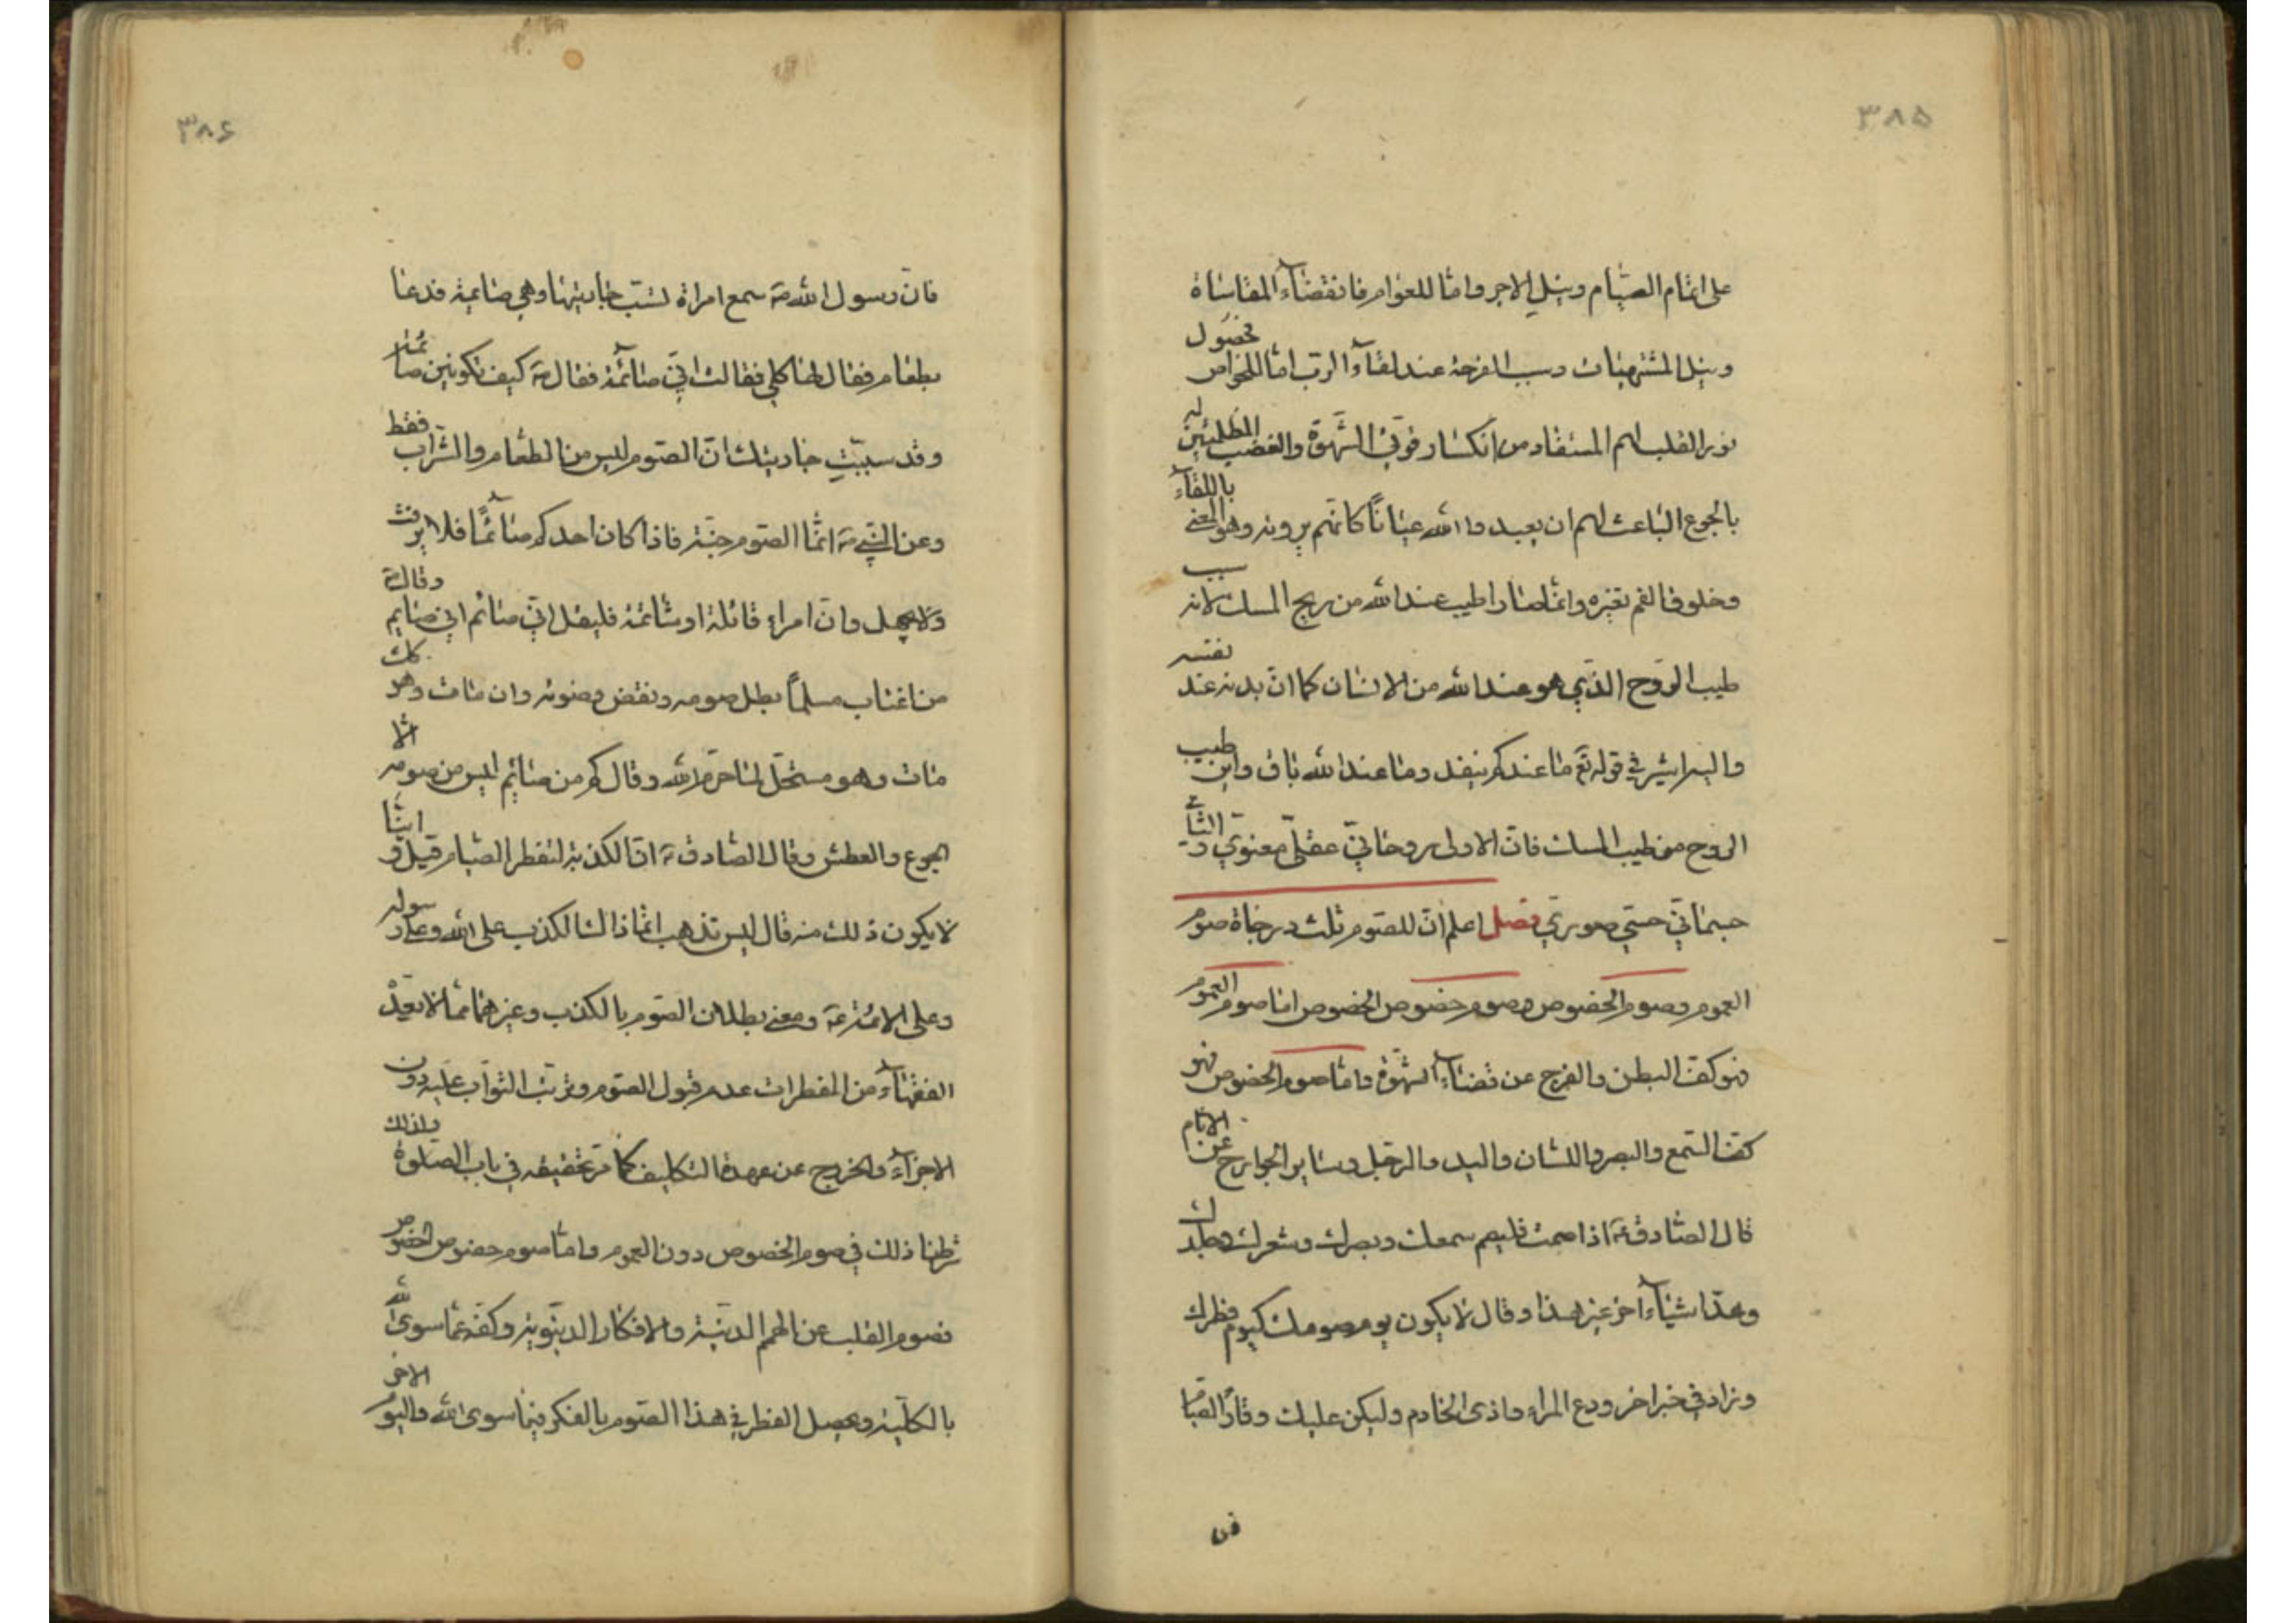 ٣٨٥
على اتمام الصيام ونيل الاجر واما للعوام فانقضاء المقاساة
ونيل المشتهيات وسبب الفرحة عند لقاء الرب اما للخواص فحصول
نور القلب لهم المستفاد من انكسار قوتي الشهوة والغضب المطلبين له
بالجوع الباعث لهم ان يعبدوا الله عيانا كانهم يرونه وهو المعنى باللقاء
وخلوف الفم تغيره وانما صار اطيب عند الله من ريح المسك لانه سبب
طيب الروح الذي هو عند الله من الانسان كما ان بدنه عند نفسه
واليه اشير في قوله تع ما عندكم ينفد وما عند الله باق واين طيب
الروح من طيب المسك فان الاولى روحاني عقلي معنوي والثاني
جسماني حسي صوري فصل اعلم ان للصوم ثلث درجاة صوم
العموم وصوم الخصوص وصوم خصوص الخصوص اما صوم العموم
فهو كف البطن والفرج عن قضاء الشهوة واما صوم الخصوص فهو
كف السمع والبصر واللسان واليد والرجل وساير الجوارح عن الاثام
قال الصادق ع اذا صمت فليصم سمعك وبصرك وشعرك وجلدك
وعد اشياء اخر غير هذا وقال لا يكون يوم صومك كيوم فطرك
وزاد في خبر اخر ودع المراء واذى الخادم وليكن عليك وقار الصيام
فان
٣٨۶
فان رسول الله ص سمع امراة تسب جاريتها وهي صائمة فدعا
بطعام فقال لها كلي فقالت اني صائمة فقال ص كيف تكونين صائمة
وقد سببت جاريتك ان الصوم ليس من الطعام والشراب فقط
وعن النبي ص انما الصوم جنة فاذا كان احدكم صائما فلا يرفث
ولا يجهل وان امراء قاتله او شاتمه فليقل اني صائم اني صايم وقال ص
من اغتاب مسلما بطل صومه ونقض وضوئه وان مات وهو كك
مات وهو مستحل لما حرم الله وقال كم من صائم ليس من صومه الا
الجوع والعطش وقال الصادق ع ان الكذبة لتفطر الصيام قيل واينا
لا يكون ذلك منه قال ليس تذهب انما ذاك الكذب على الله وعلى رسوله
وعلى الائمة ع ومعنى بطلان الصوم بالكذب وغيره مما لا يعده
الفقهاء من المفطرات عدم قبول الصوم وترتب الثواب عليه دون
الاجزاء والخروج عن عهدة التكليف كما مر تحقيقه في باب الصلوة ولذلك
شرطنا ذلك في صوم الخصوص دون العموم واما صوم خصوص الخصوص
فصوم القلب عن الهمم الدنية والافكار الدنيوية وكفه عما سوى الله
بالكلية ويحصل الفطر في هذا الصوم بالفكر فيما سوى الله واليوم الاخر